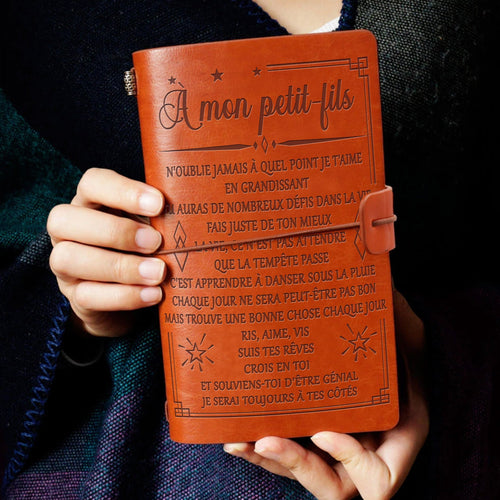 À mon petit-fils
N'OUBLIE JAMAIS À QUEL POINT JE T'AIME
EN GRANDISSANT
AURAS DE NOMBREUX DÉFIS DANS LA VIE
FAIS JUSTE DE TON MIEUX
LA VIE, CE N'EST PAS ATTENDRE
QUE LA TEMPÊTE PASSE
C'EST APPRENDRE À DANSER SOUS LA PLUIE
CHAQUE JOUR NE SERA PEUT-ÊTRE PAS BON
MAIS TROUVE UNE BONNE CHOSE CHAQUE JOUR
RIS, AIME, VIS
SUIS TES RÊVES
CROIS EN TOI
ET SOUVIENS-TOI D'ÊTRE GÉNIAL
JE SERAI TOUJOURS À TES CÔTÉS